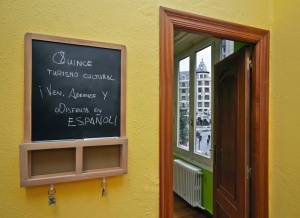 QUINCE
TURISMO CULTURAL
¡VEN, APRENDE Y
DISFRUTA EN
ESPAÑOL!